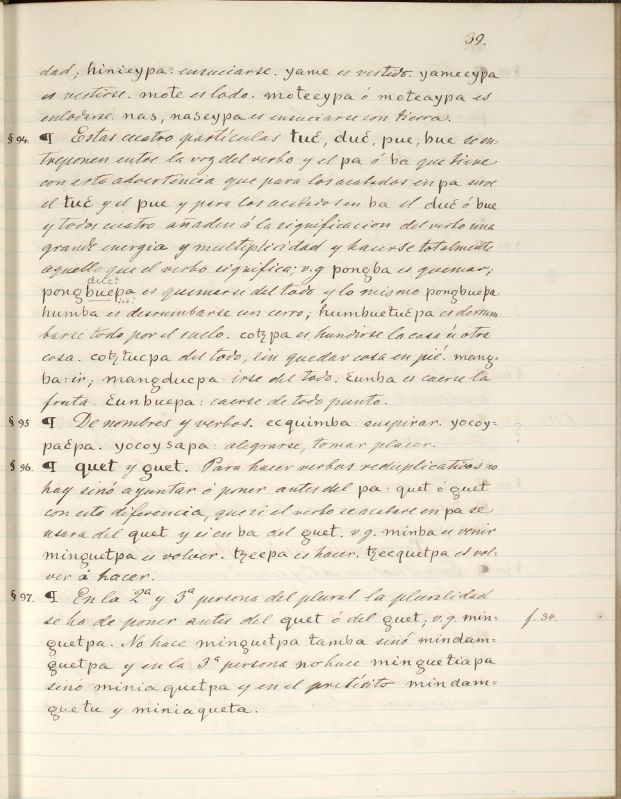 39.
dad; hinieypa: ensuciarse. yame es vestido. yameeypa
es vertirse. mote es lodo. moteeypa ó moteaypa es
enlodarse. nas, naseypa es ensuciarse con tierra.
§ 94. ¶ Estas cuatro partículas tuɛ, duɛ, pue, bue se en=
treponen entre la voz del verbo y el pa ó ba que tiene
con esta advertencia que para los acabados en pa sirve
el tuɛ y el pue y para los acabados en ba el duɛ ó bue
y todos cuatro añaden á la significacion del verbo una
grande energia y multiplicidad y hacerse totalmente
aquello que el verbo significa; v.g pongba es quemar;
duɛ?
pongbuepa es quemarse del todo y lo mismo pongbuepa.
sic?
humba es derrumbarse un cerro; humbuetuɛpa es derrum=
barse todo por el suelo. cotʒpa es hundirse la casa ú otra
cosa. cotʒtuɛpa del todo, sin quedar cosa en pié. mang=
ba: ir; mangduɛpa irse del todo. ɛunba es caerse la
fruta. ɛunbuepa: caerse de todo punto.
§ 95 ¶ De nombres y verbos. ecquimba: suspirar. yocoy=
paɛpa. yocoysapa: alegrarse, tomar placer. ?
§ 96. ¶ quet y guet. Para hacer verbos reduplicativos no
hay sinó ayuntar ó poner antes del pa: quet ó guet
con esta diferencia, que si el verbo se acabare en pa se
usara del quet y si en ba del guet. v.g. minba es venir
minguetpa es volver. tʒecpa es hacer. tʒecquetpa es vol=
ver á hacer.
§ 97. ¶ En la 2ª y 3ª persona del plural la pluralidad
se ha de poner antes del quet ó del guet; v.g. min= f. 34.
guetpa. No hace minguetpa tamba sinó mindam=
guetpa y en la 3ª persona no hace minguetiapa
sinó miniaquetpa y en el pretérito mindam=
guetu y miniaqueta.